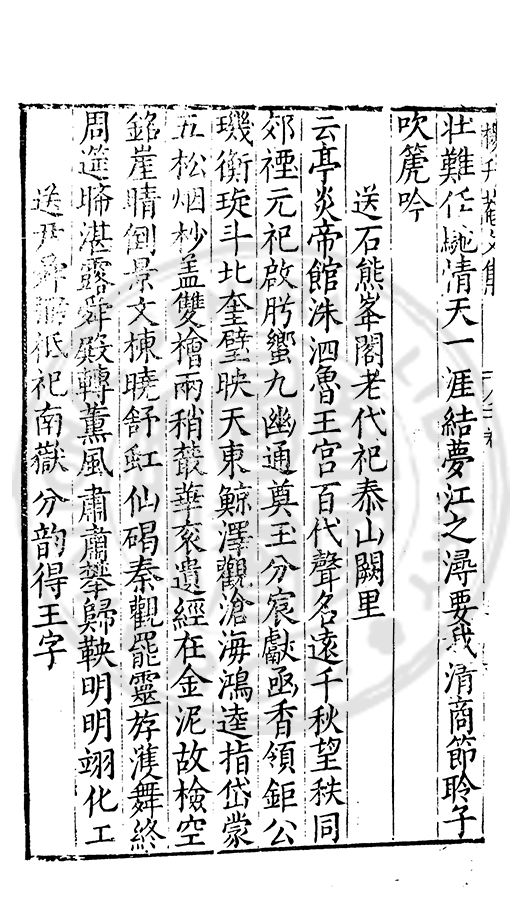 壯難任馳情天一涯結夢江之潯要我清商節聆子
吹篪吟
送石熊峯閣老代祀泰山闕里
云亭炎帝館洙泗魯王宮百代聲名遠千秋望秩同
郊禋元祀啟肹蠁九幽通奠玉分宸獻函香領鉅公
璣衡旋斗北奎璧映天東鯨澤觀滄海鴻逵指岱蒙
五松烟杪蓋雙檜雨稍叢華袞遺經在金泥故檢空
銘崖晴倒景文棟曉舒虹仙碣秦觀罷靈斿濩舞終
周筵晞湛露舜殿轉薰風肅肅攀歸鞅明明翊化工
送尹舜祇祀南嶽分韵得王字